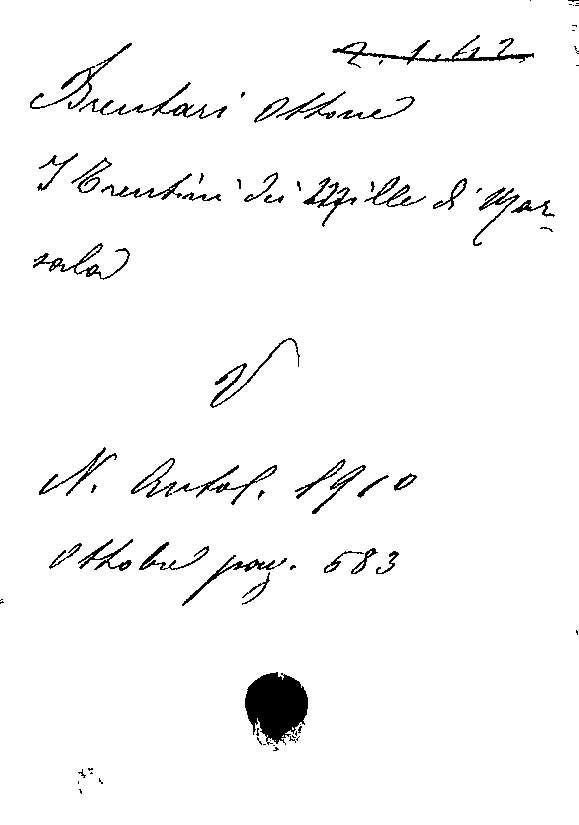 2.1.42.
Brentari Ottone
I Trentini dei Mille di Mar-
sala
V
N. Antol. 1910
Ottobre pag. 583